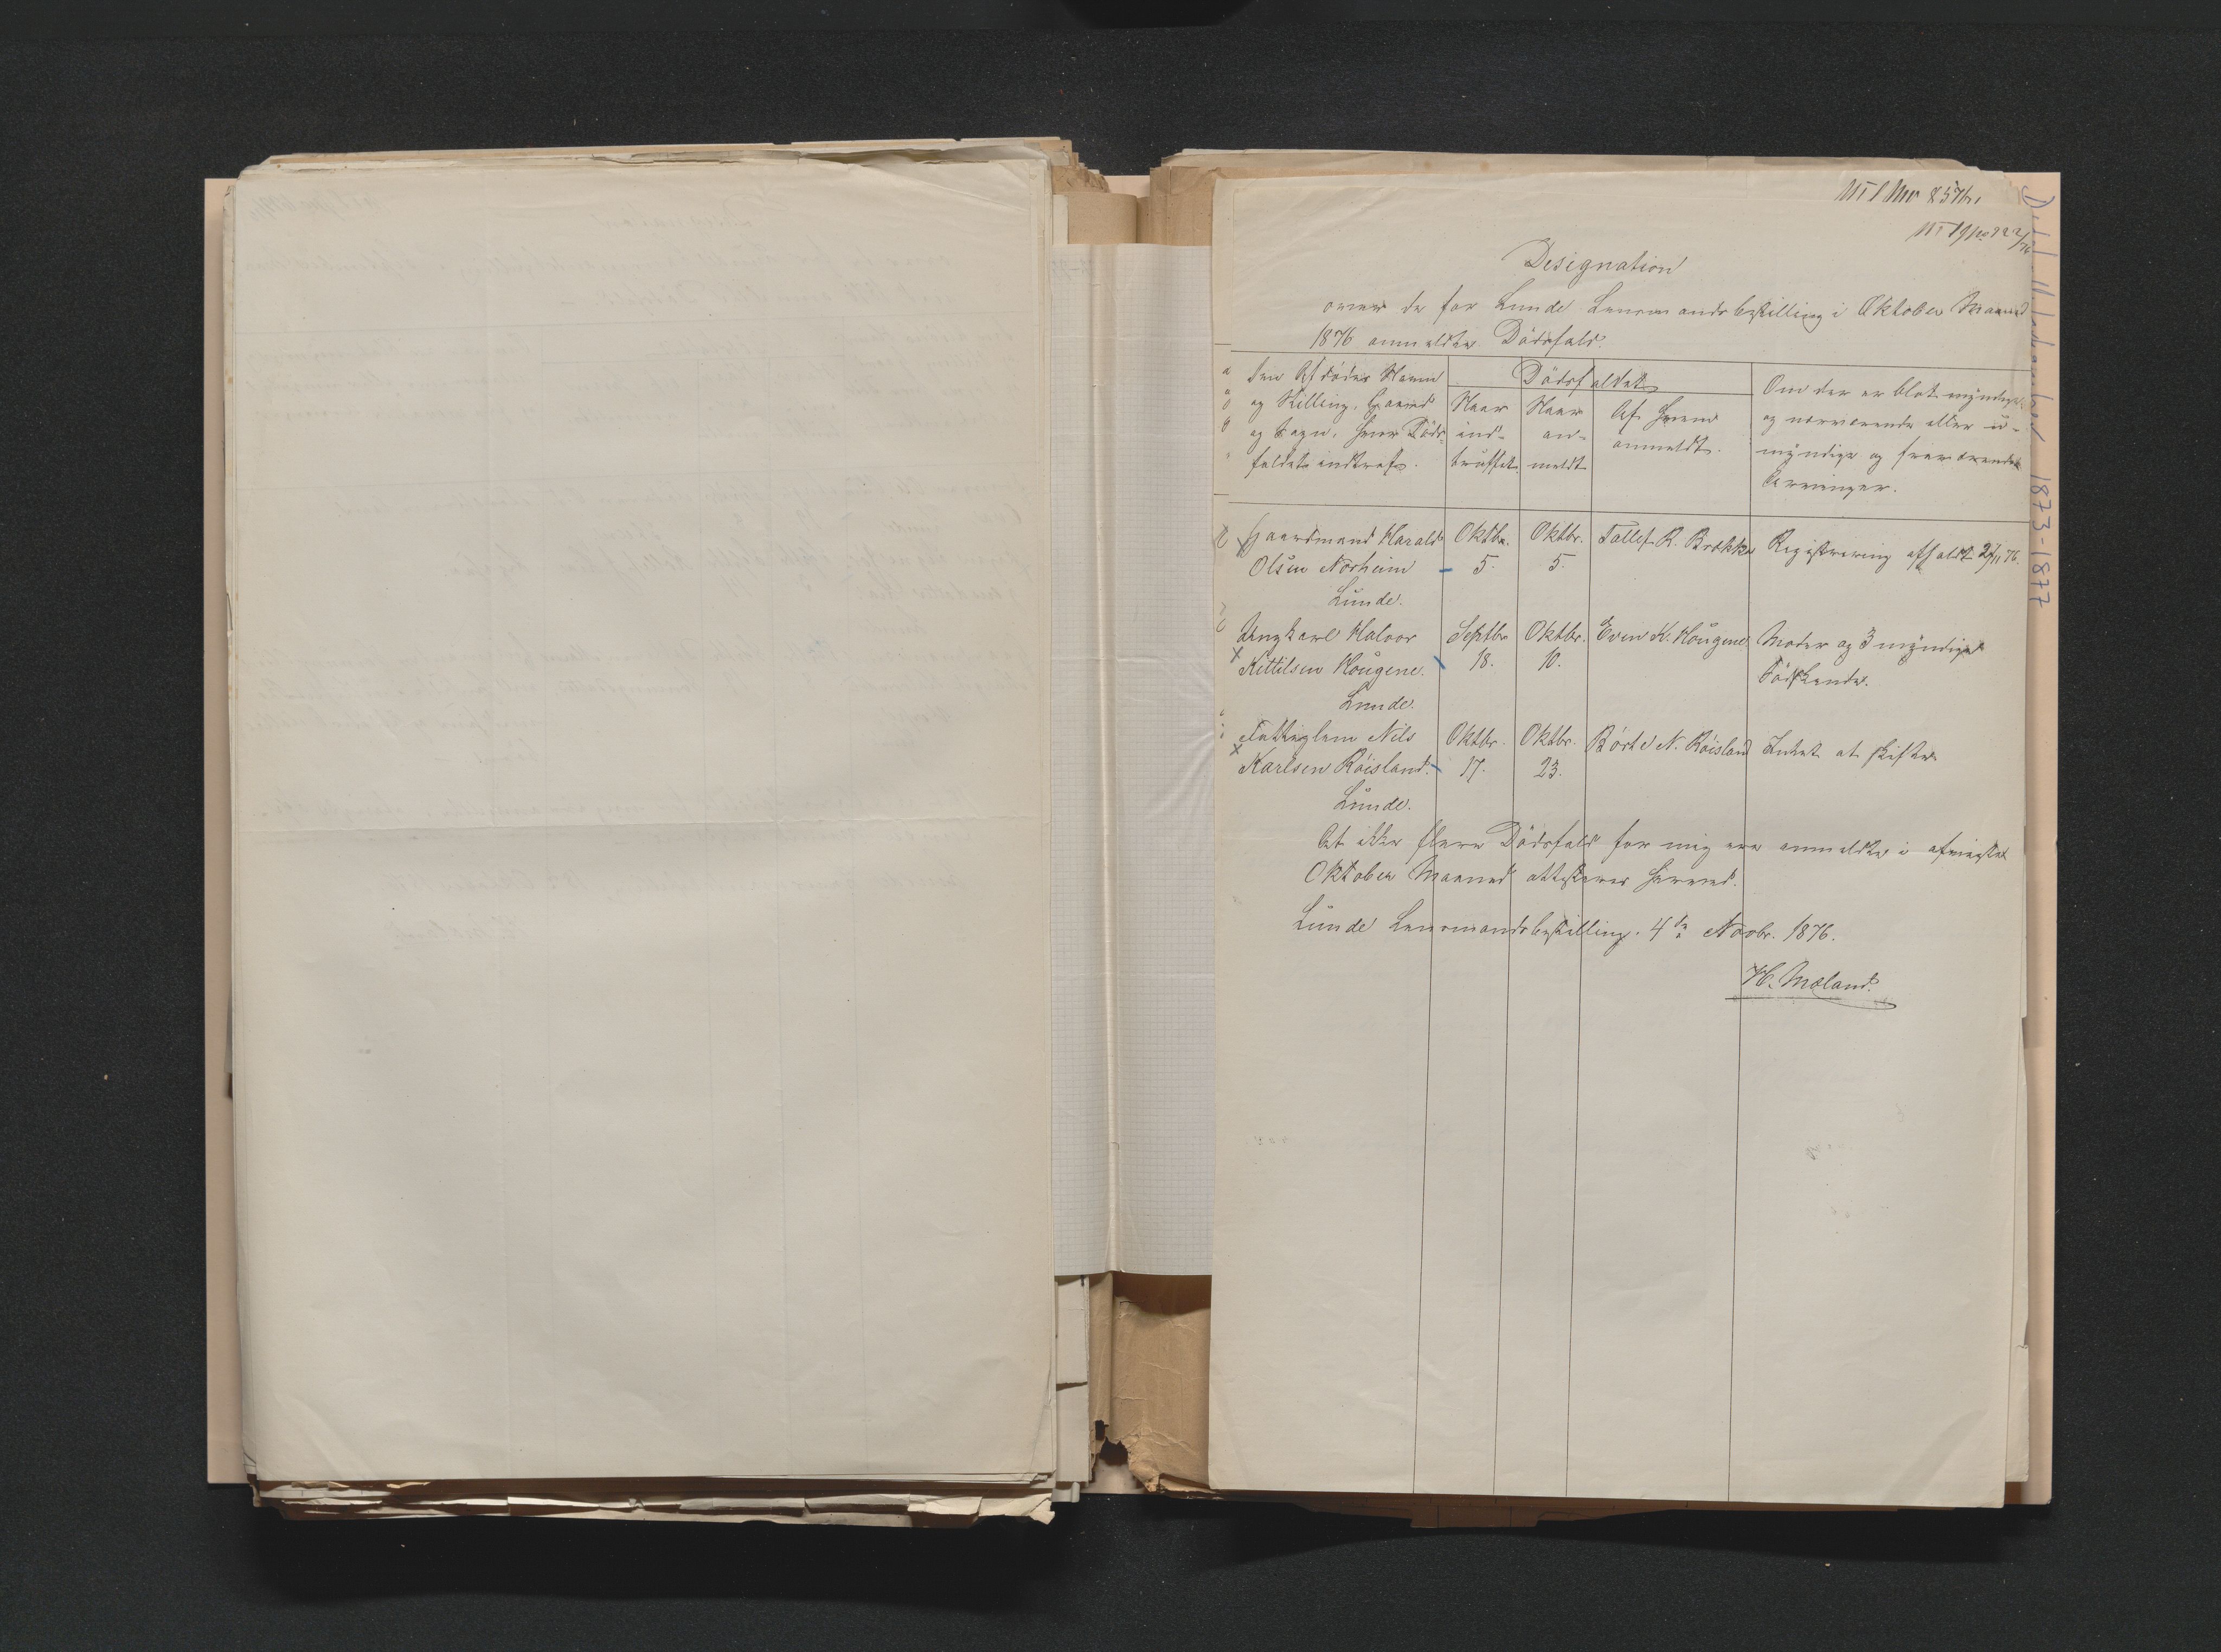 Designation
over de for Lunde Lensmandsbestilling i Oktober Maaned
1876 anmeldte Dödsfald.
Den Afdödes Navn
og Stilling, Gaard
og Sogn, hvor Döds-
faldet indtraf.
Dödsfaldet
Naar
ind-
truffet.
Naar
an-
meldt
Af hvem
anmeldt.
Om der er blot myndige
og nærværende eller u-
myndige og fraværende
Arvinger.
Gaardmand Harald
Olsen Norheim
Lunde.
Oktbr.
5.
Oktbr.
5.
Tallef R. Brække
Registrering afholdt 2/11 76.
Ungkarl Halvor
Kittilsen Hougene.
Lunde.
Septbr
18.
Oktbr.
10.
Even K. Hougene
Moder og 3 myndige
Södskende.
Fattiglem Nils
Karlsen Röisland.
Lunde.
Oktbr.
17.
Oktbr.
23.
Börte N. Röisland
Intet at skifte
At ikke flere Dödsfald for mig ere anmeldte i afvigte
Oktober Maaned attesteres herved.
Lunde Lensmandsbestilling. 4de Novbr. 1876.
H. Moland.
1873-1877